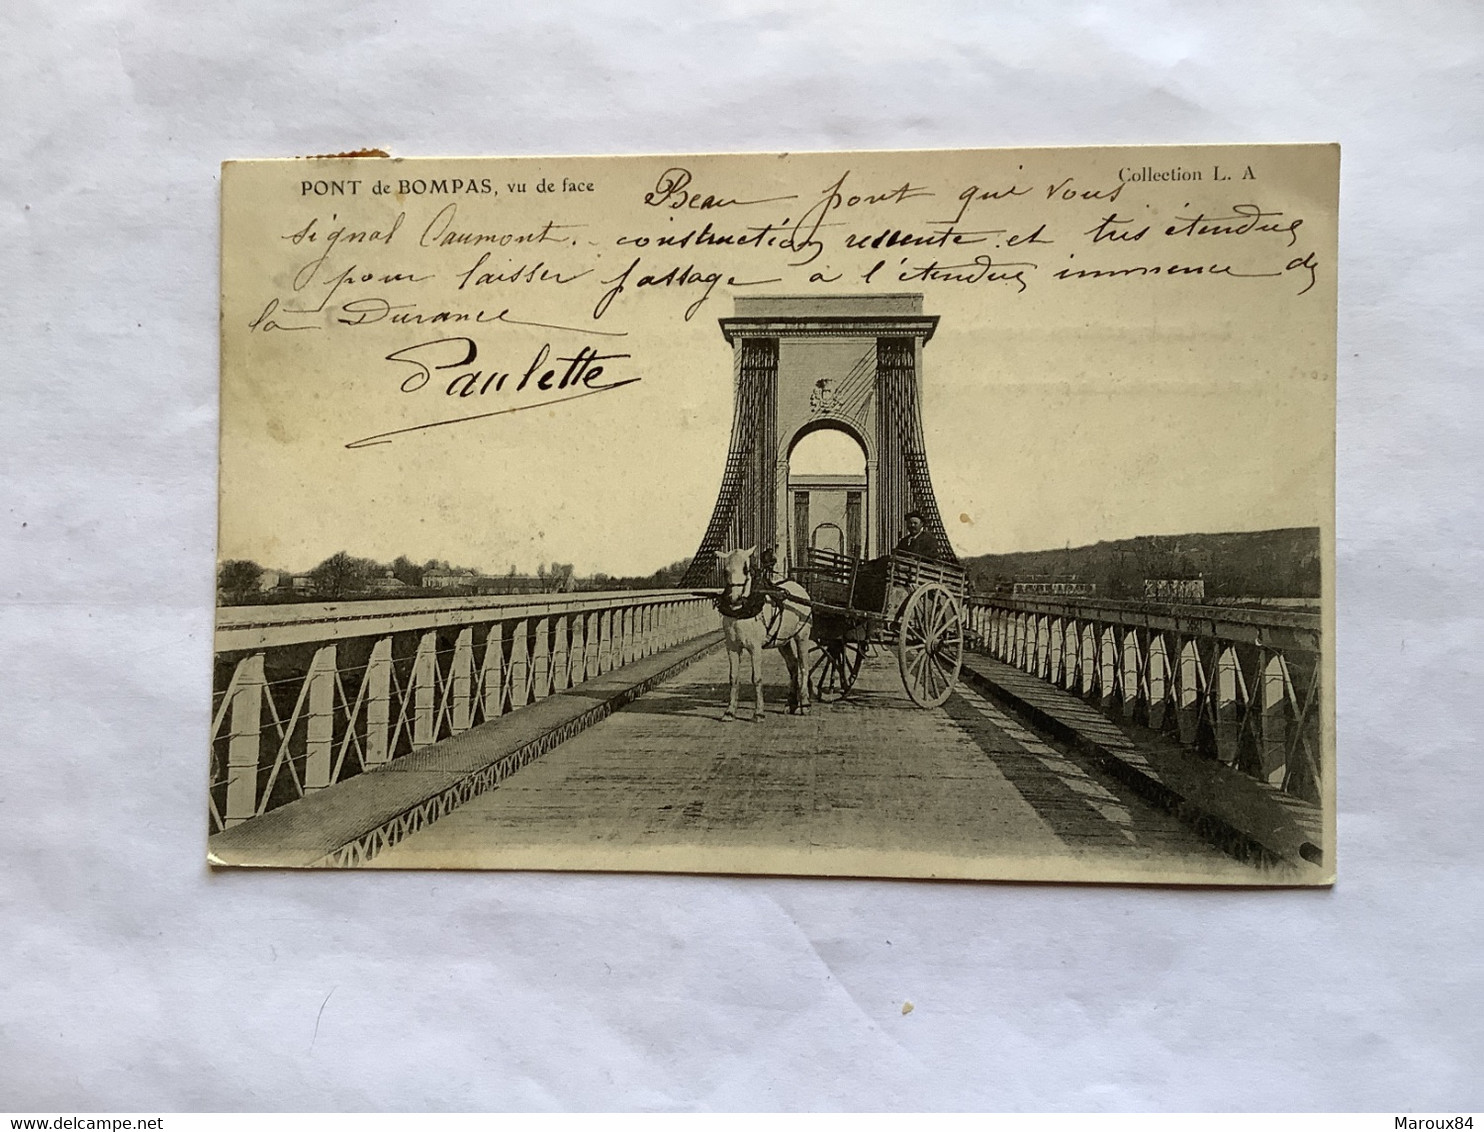 PONT de BOMPAS, vu de face
Collection L. A
Beau pont que vous
signal Caumont. construction ressente et très étendue
pour laisser passage à l'étendue immence de
la Durance
Paulette
www.delcampe.net
Maroux84